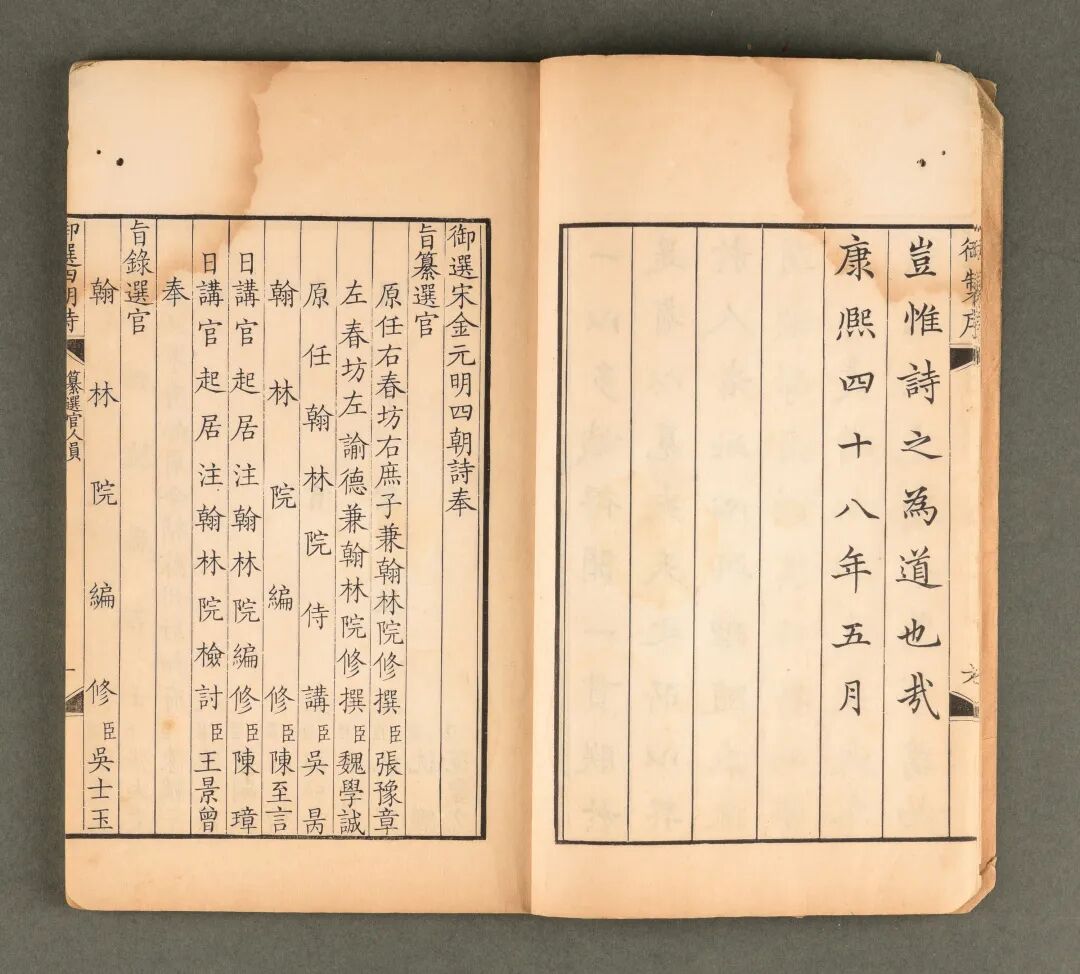 御製序
豈惟詩之為道也哉
康熙四十八年五月
御選宋金元明四朝詩奉
旨纂選官
原任右春坊右庶子兼翰林院修撰臣張豫章
左春坊左諭德兼翰林院修撰臣魏學誠
原任翰林院侍講臣吳昺
翰林院編修臣陳至言
日講官起居注翰林院編修臣陳璋
日講官起居注翰林院檢討臣王景曾
奉
旨錄選官
翰林院編修臣吳士玉
御選四朝詩
纂選官人員
一